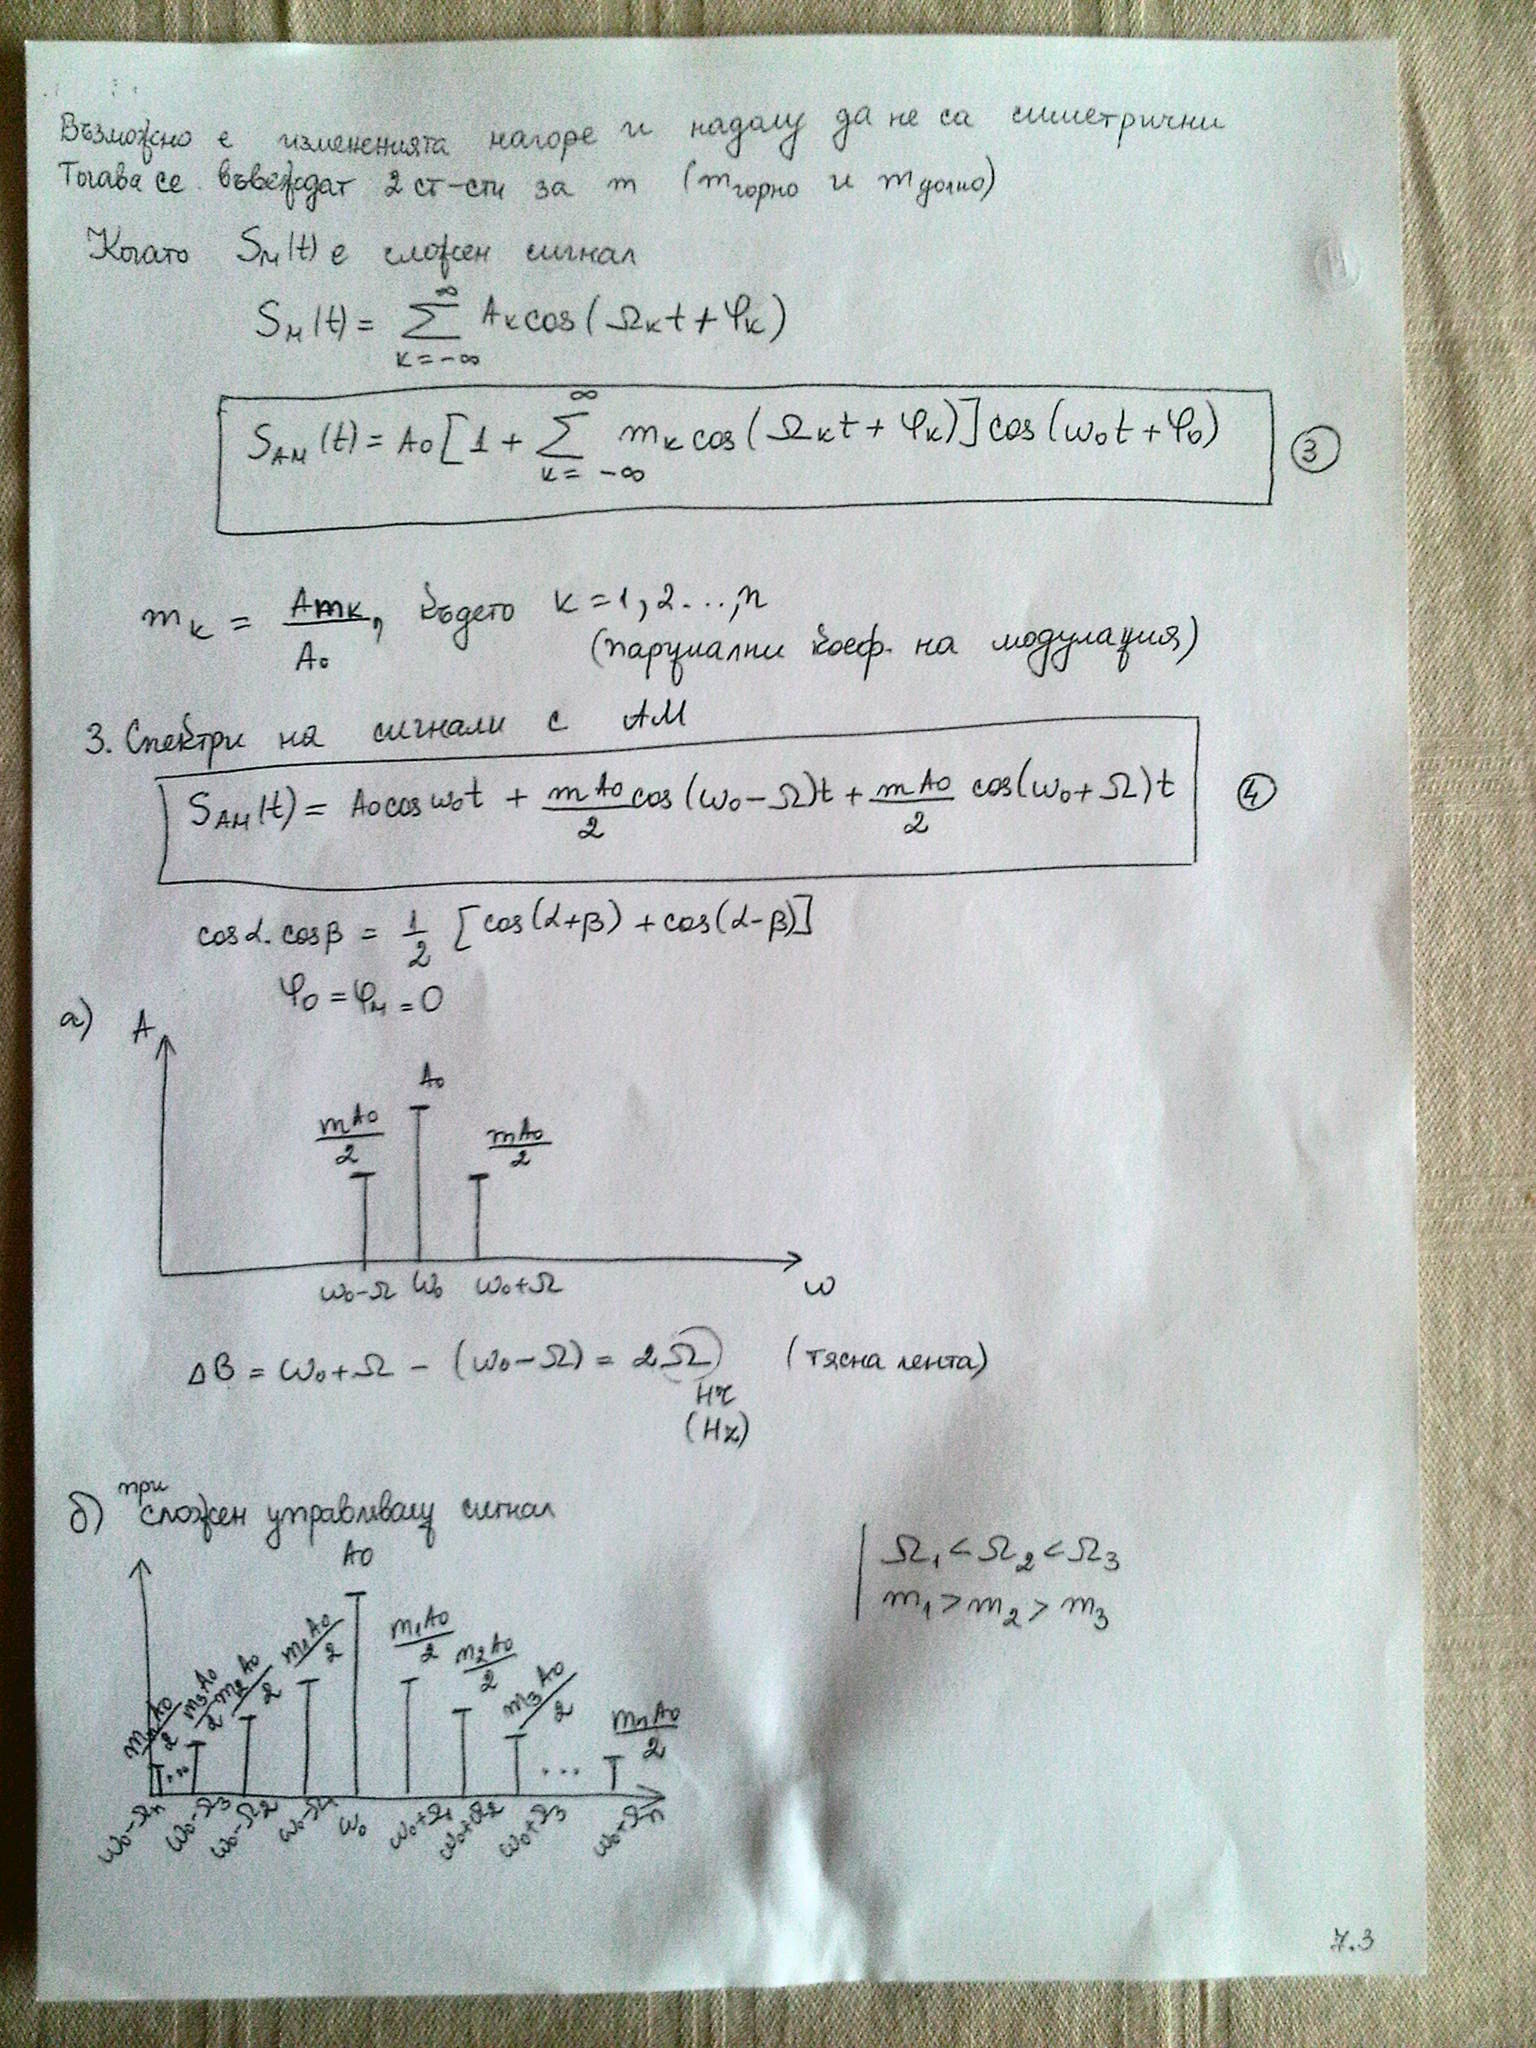 Възможно е измененията нагоре и надолу да не са симетрични
Тогава се въвеждат 2 ст-сти за m (m горно и m долно)
Когато Sм(t) е сложен сигнал
Sм(t) = ∑ k=-∞ ∞ Aк cos(Ωкt + φк)
SAM(t) = A0[1 + ∑ k=-∞ ∞ mк cos(Ωкt + φк)] cos(ω0t + φ0) ③
mк = Amк/A0, където k = 1, 2..., n
(парциални коеф. на модулация)
3. Спектри на сигнали с АМ
SAM(t) = A0 cos ω0t + mA0/2 cos(ω0 - Ω)t + mA0/2 cos(ω0 + Ω)t ④
cosα.cosβ = 1/2 [cos(α+β) + cos(α-β)]
φ0 = φм = 0
а) A
A0
mA0/2 mA0/2
ω0-Ω ω0 ω0+Ω ω
ΔB = ω0+Ω - (ω0-Ω) = 2Ω (тясна лента)
Нг
(Hz)
б) при сложен управляващ сигнал
Ω1 < Ω2 < Ω3
m1 > m2 > m3
A0
mnA0/2 m3A0/2 m2A0/2 m1A0/2 m1A0/2 m2A0/2 m3A0/2 mnA0/2
... ...
ω0-Ωn ω0-Ω3 ω0-Ω2 ω0-Ω1 ω0 ω0+Ω1 ω0+Ω2 ω0+Ω3 ω0+Ωn
7.3